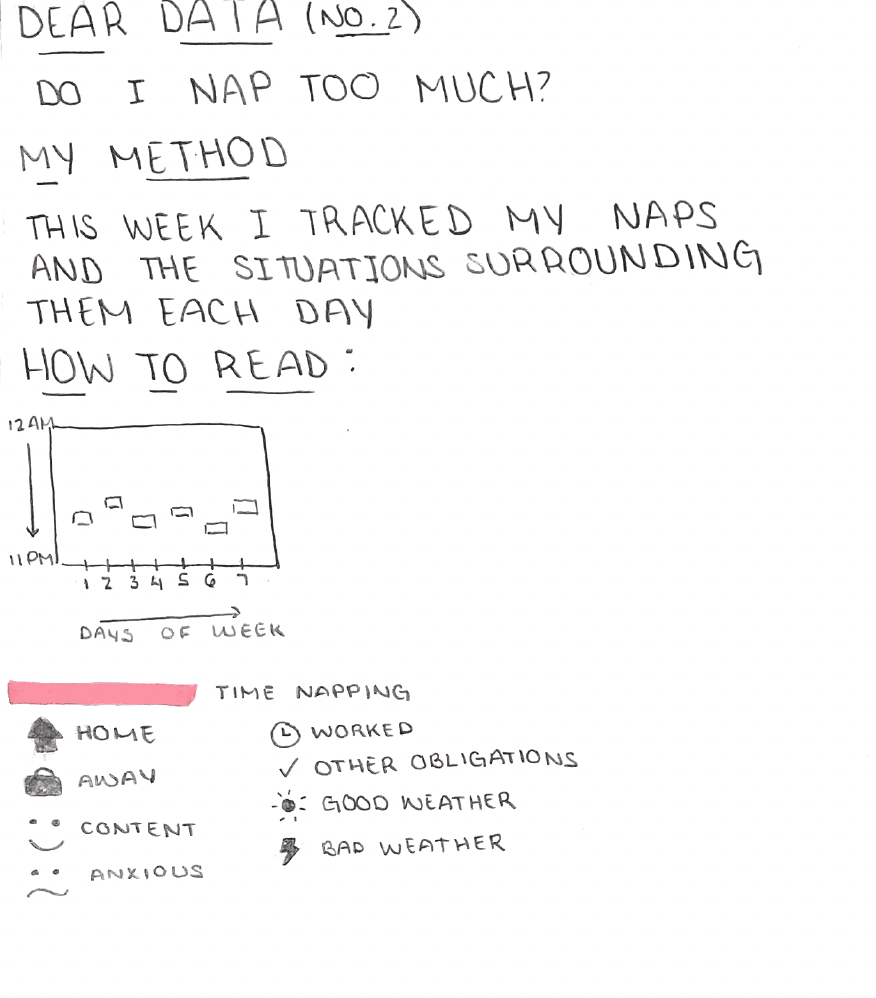 DEAR DATA (NO. 2)
DO I NAP TOO MUCH?
MY METHOD
THIS WEEK I TRACKED MY NAPS
AND THE SITUATIONS SURROUNDING
THEM EACH DAY
HOW TO READ:
12 AM
11 PM
1 2 3 4 5 6 7
DAYS OF WEEK
TIME NAPPING
HOME
AWAY
CONTENT
ANXIOUS
WORKED
OTHER OBLIGATIONS
GOOD WEATHER
BAD WEATHER